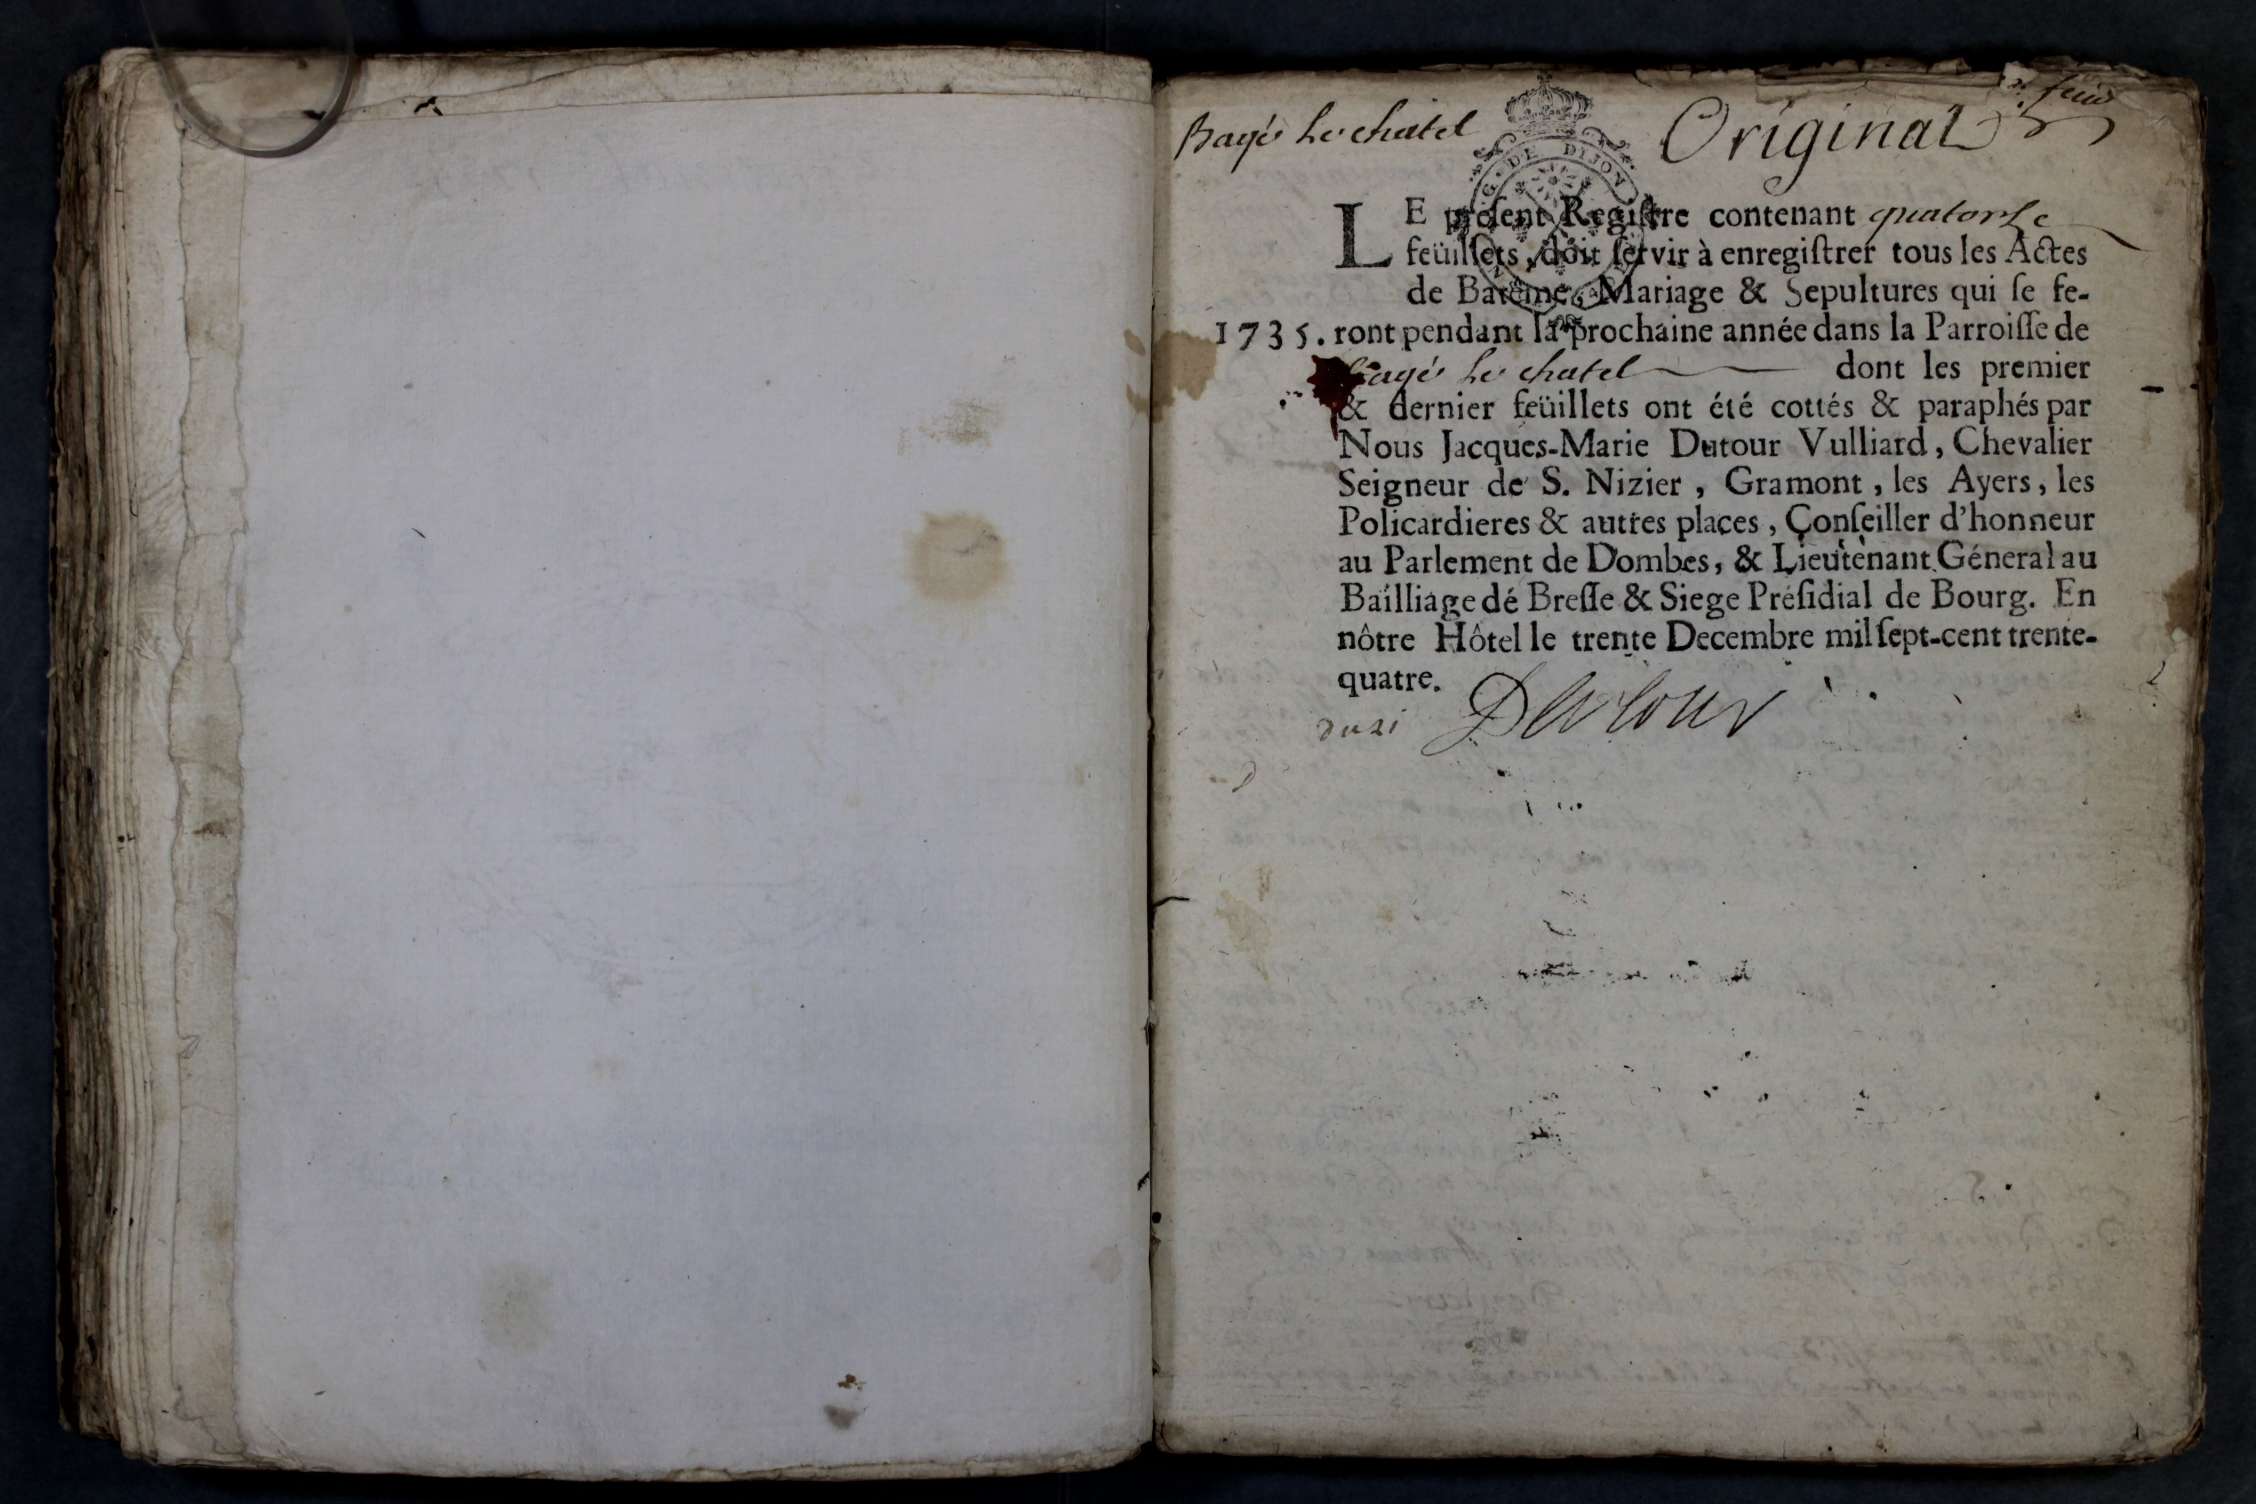 Bagé Le chatel
Original
G. DE DIJON
LE present Regiſtre contenant quatorze
feüillets, doit ſervir à enregiſtrer tous les Actes
de Batême, Mariage & Sepultures qui ſe fe-
1735. ront pendant la prochaine année dans la Parroiſſe de
Bagé Le chatel dont les premier
& dernier feüillets ont été cottés & paraphés par
Nous Jacques-Marie Dutour Vulliard, Chevalier
Seigneur de S. Nizier, Gramont, les Ayers, les
Policardieres & autres places, Conſeiller d'honneur
au Parlement de Dombes, & Lieutenant Géneral au
Bailliage dé Breſſe & Siege Préſidial de Bourg. En
nôtre Hôtel le trente Decembre mil ſept-cent trente-
quatre.
Dutour